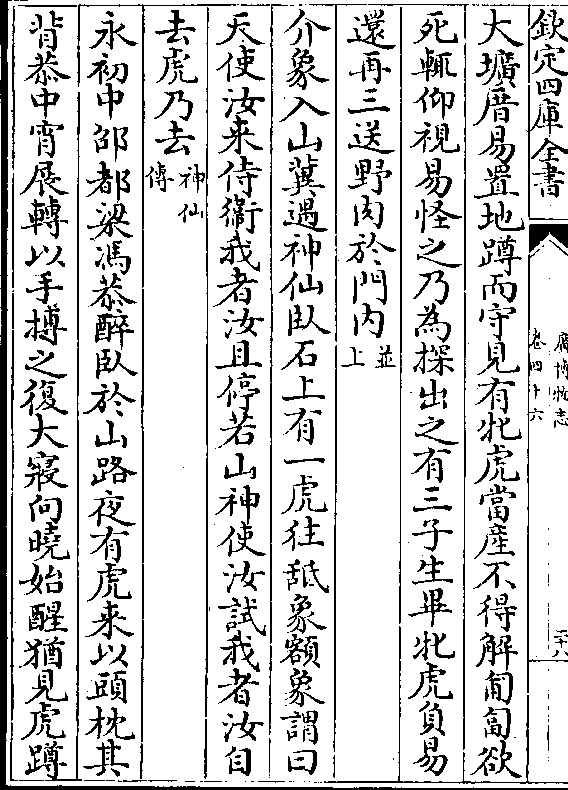 欽定四庫全書
廣博物志
卷四十六
大壙厝易置地蹲而守見有牝虎當產不得解匍匐欲
死輒仰視易怪之乃為探出之有三子生畢牝虎負易
還再三送野肉於門内並上
介象入山冀遇神仙臥石上有一虎往舐象額象謂曰
天使汝来侍衞我者汝且停若山神使汝試我者汝自
去虎乃去神仙傳
永初中邵都梁馮恭醉臥於山路夜有虎来以頭枕其
背恭中宵展轉以手摶之復大寢向曉始醒猶見虎蹲